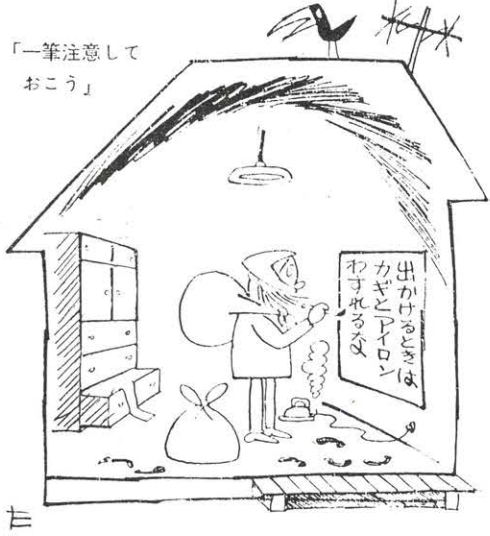 「一筆注意して
おこう」
出かけるときは
カギとアイロン
わすれるな